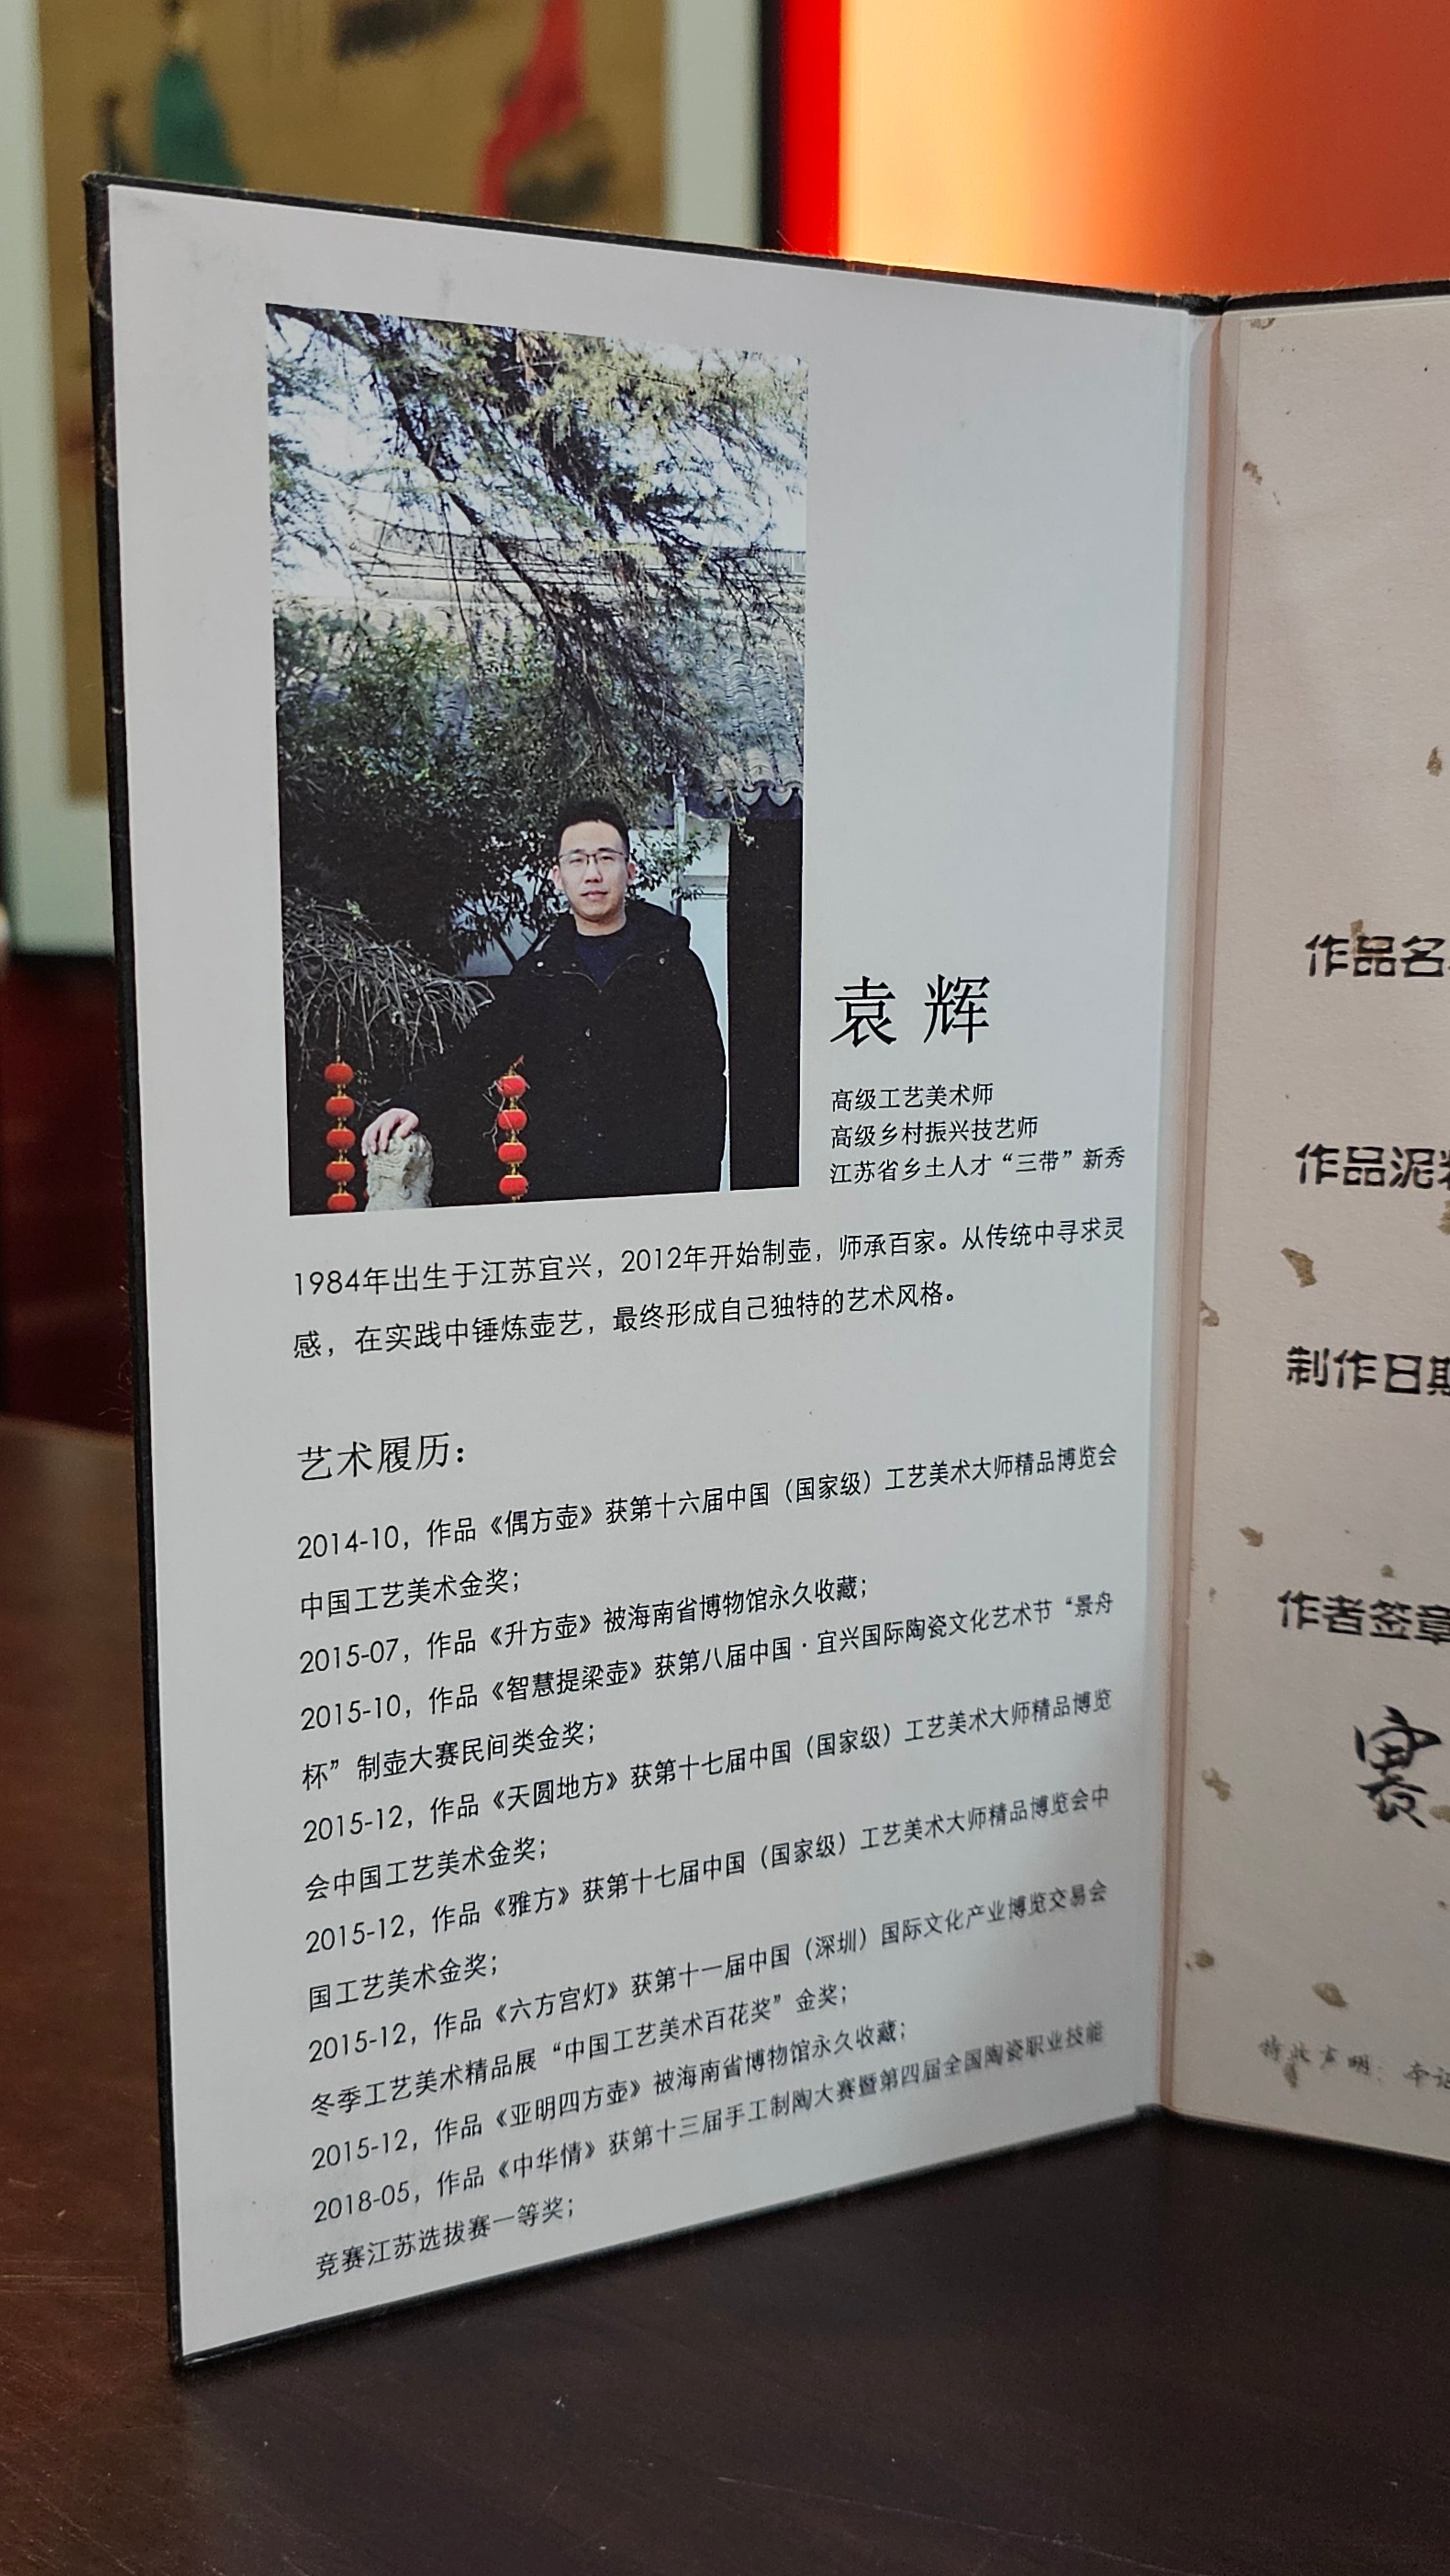 袁辉
高级工艺美术师
高级乡村振兴技艺师
江苏省乡土人才“三带”新秀
1984年出生于江苏宜兴，2012年开始制壶，师承百家。从传统中寻求灵
感，在实践中锤炼壶艺，最终形成自己独特的艺术风格。
艺术履历：
2014-10，作品《偶方壶》获第十六届中国（国家级）工艺美术大师精品博览会
中国工艺美术金奖；
2015-07，作品《升方壶》被海南省博物馆永久收藏；
2015-10，作品《智慧提梁壶》获第八届中国·宜兴国际陶瓷文化艺术节“景舟
杯”制壶大赛民间类金奖；
2015-12，作品《天圆地方》获第十七届中国（国家级）工艺美术大师精品博览
会中国工艺美术金奖；
2015-12，作品《雅方》获第十七届中国（国家级）工艺美术大师精品博览会中
国工艺美术金奖；
2015-12，作品《六方宫灯》获第十一届中国（深圳）国际文化产业博览交易会
冬季工艺美术精品展“中国工艺美术百花奖”金奖；
2015-12，作品《亚明四方壶》被海南省博物馆永久收藏；
2018-05，作品《中华情》获第十三届手工制陶大赛暨第四届全国陶瓷职业技能
竞赛江苏选拔赛一等奖；
作品名
作品泥
制作日期
作者签章